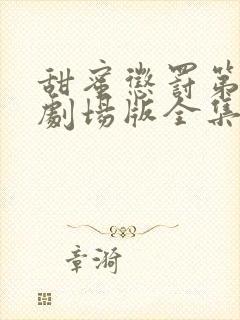 甜蜜懲罰第
劇場版全集
章漪